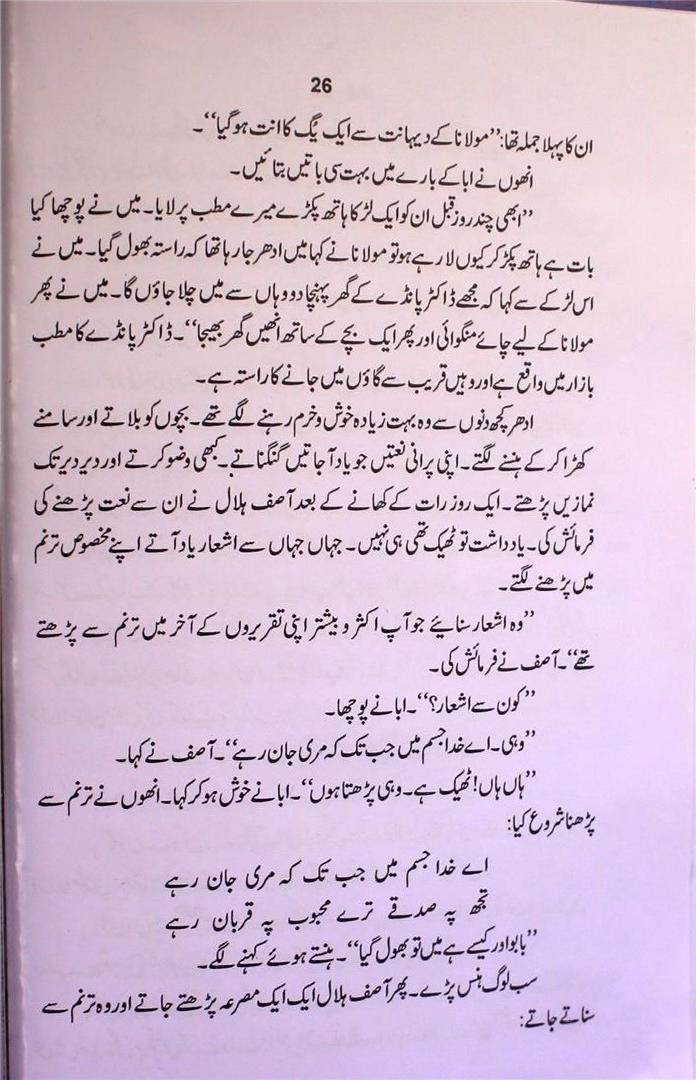 26
ان کا پہلا جملہ تھا: ”مولانا کے دیہانت سے ایک یُگ کا انت ہو گیا“۔
انھوں نے ابا کے بارے میں بہت سی باتیں بتائیں۔
”ابھی چند روز قبل ان کو ایک لڑکا ہاتھ پکڑے میرے مطب پر لایا۔ میں نے پوچھا کیا
بات ہے ہاتھ پکڑ کر کیوں لا رہے ہو تو مولانا نے کہا میں ادھر جا رہا تھا کہ راستہ بھول گیا۔ میں نے
اس لڑکے سے کہا کہ مجھے ڈاکٹر پانڈے کے گھر پہنچا دو وہاں سے میں چلا جاؤں گا۔ میں نے پھر
مولانا کے لیے چائے منگوائی اور پھر ایک بچے کے ساتھ انھیں گھر بھیجا“۔ ڈاکٹر پانڈے کا مطب
بازار میں واقع ہے اور وہیں قریب سے گاؤں میں جانے کا راستہ ہے۔
ادھر کچھ دنوں سے وہ بہت زیادہ خوش و خرم رہنے لگے تھے۔ بچوں کو بلاتے اور سامنے
کھڑا کر کے ہنسنے لگتے۔ اپنی پرانی نعتیں جو یاد آجاتیں گنگناتے۔ کبھی وضو کرتے اور دیر دیر تک
نمازیں پڑھتے۔ ایک روز رات کے کھانے کے بعد آصف ہلال نے ان سے نعت پڑھنے کی
فرمائش کی۔ یادداشت تو ٹھیک تھی ہی نہیں۔ جہاں جہاں سے اشعار یاد آتے اپنے مخصوص ترنم
میں پڑھنے لگتے۔
”وہ اشعار سنائیے جو آپ اکثر و بیشتر اپنی تقریروں کے آخر میں ترنم سے پڑھتے
تھے“۔ آصف نے فرمائش کی۔
”کون سے اشعار؟“۔ ابا نے پوچھا۔
”وہی۔ اے خدا جسم میں جب تک کہ مری جان رہے“۔ آصف نے کہا۔
”ہاں ہاں! ٹھیک ہے۔ وہی پڑھتا ہوں“۔ ابا نے خوش ہو کر کہا۔ انھوں نے ترنم سے
پڑھنا شروع کیا:
اے خدا جسم میں جب تک کہ مری جان رہے
تجھ پہ صدقے ترے محبوب پہ قربان رہے
”بابو اور کیسے ہے میں تو بھول گیا“۔ ہنستے ہوئے کہنے لگے۔
سب لوگ ہنس پڑے۔ پھر آصف ہلال ایک ایک مصرعہ پڑھتے جاتے اور وہ ترنم سے
سناتے جاتے: